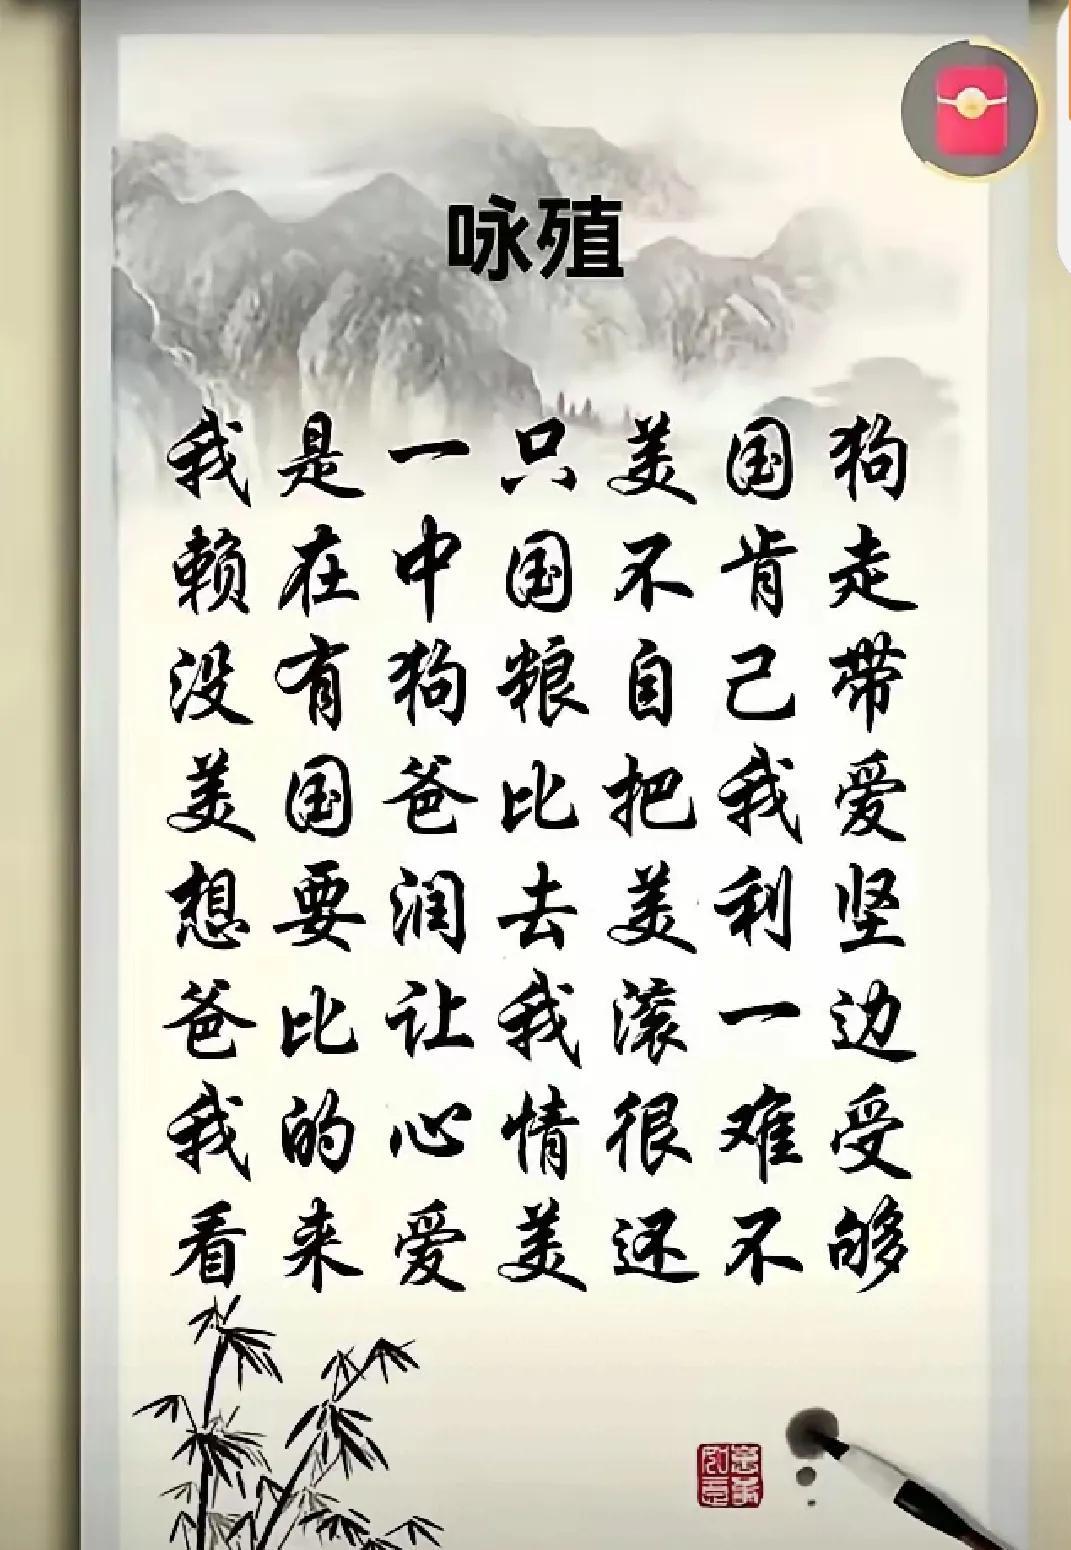 咏殖
我是一只美国狗
赖在中国不肯走
没有狗粮自己带
美国爸比把我爱
想要润去美利坚
爸比让我滚一边
我的心情很难受
看来爱美还不够